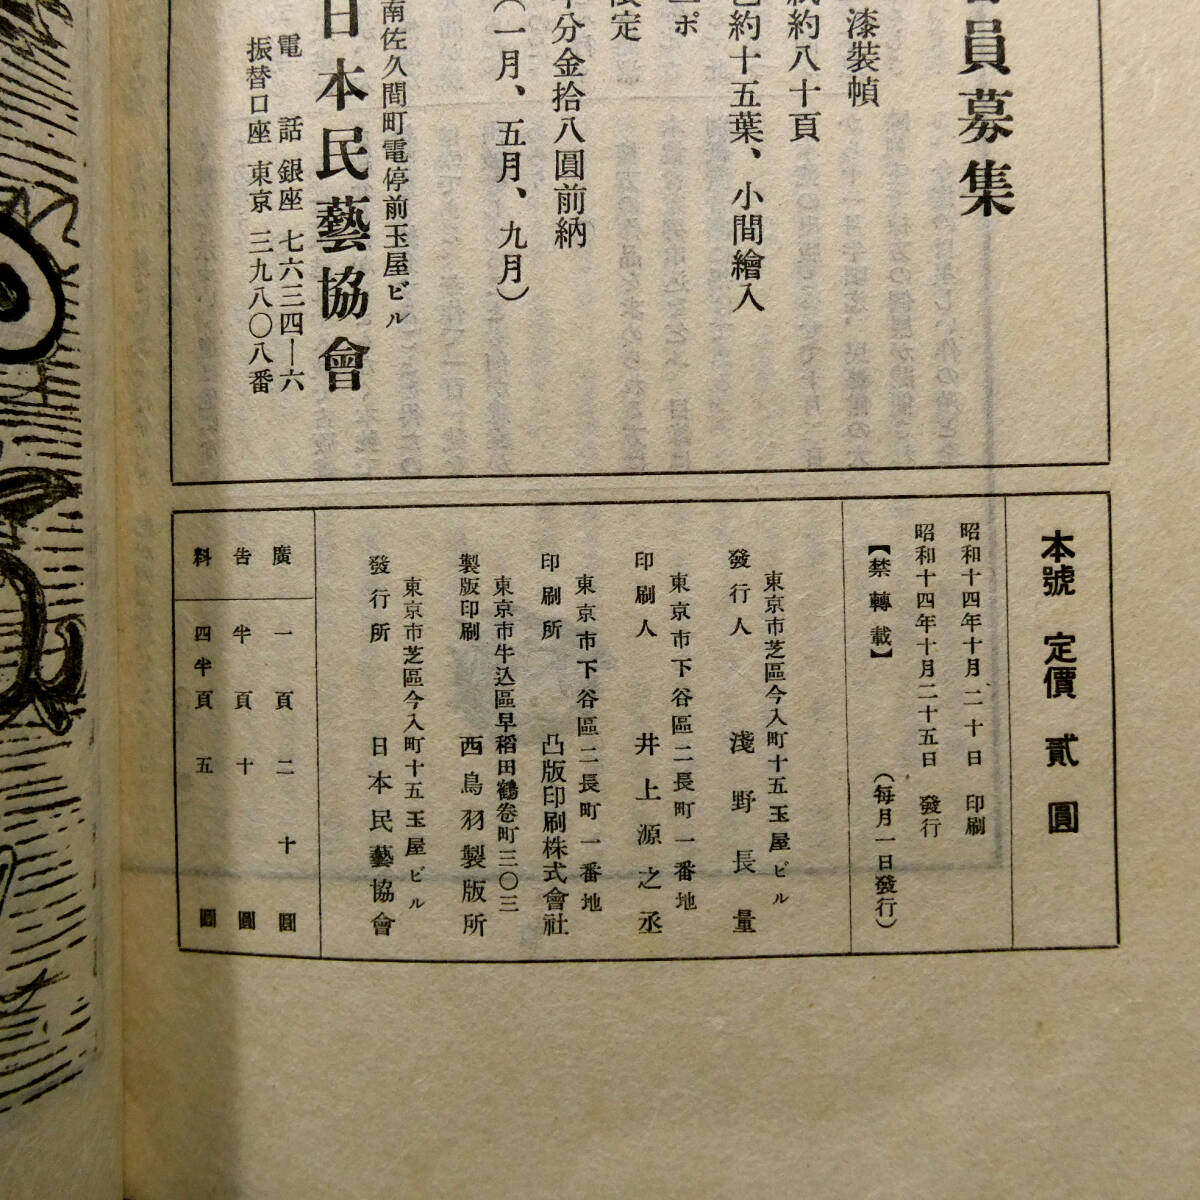 員募集
漆裝幀
約八十頁
約十五葉、小間繪入
ポ
限定
半分金拾八圓前納
（一月、五月、九月）
南佐久間町電停前玉屋ビル
日本民藝協會
電話銀座七六三四―六
振替口座東京三九八〇八番
本號 定價 貳圓
昭和十四年十月二十日 印刷
昭和十四年十月二十五日 發行
【禁轉載】 （每月一日發行）
東京市芝區今入町十五玉屋ビル
發行人 淺野長量
東京市下谷區二長町一番地
印刷人 井上源之丞
東京市下谷區二長町一番地
印刷所 凸版印刷株式會社
東京市牛込區早稻田鶴卷町三〇三
製版印刷 西鳥羽製版所
東京市芝區今入町十五玉屋ビル
發行所 日本民藝協會
廣告料
一頁 二十圓
半頁 十圓
四半頁 五圓